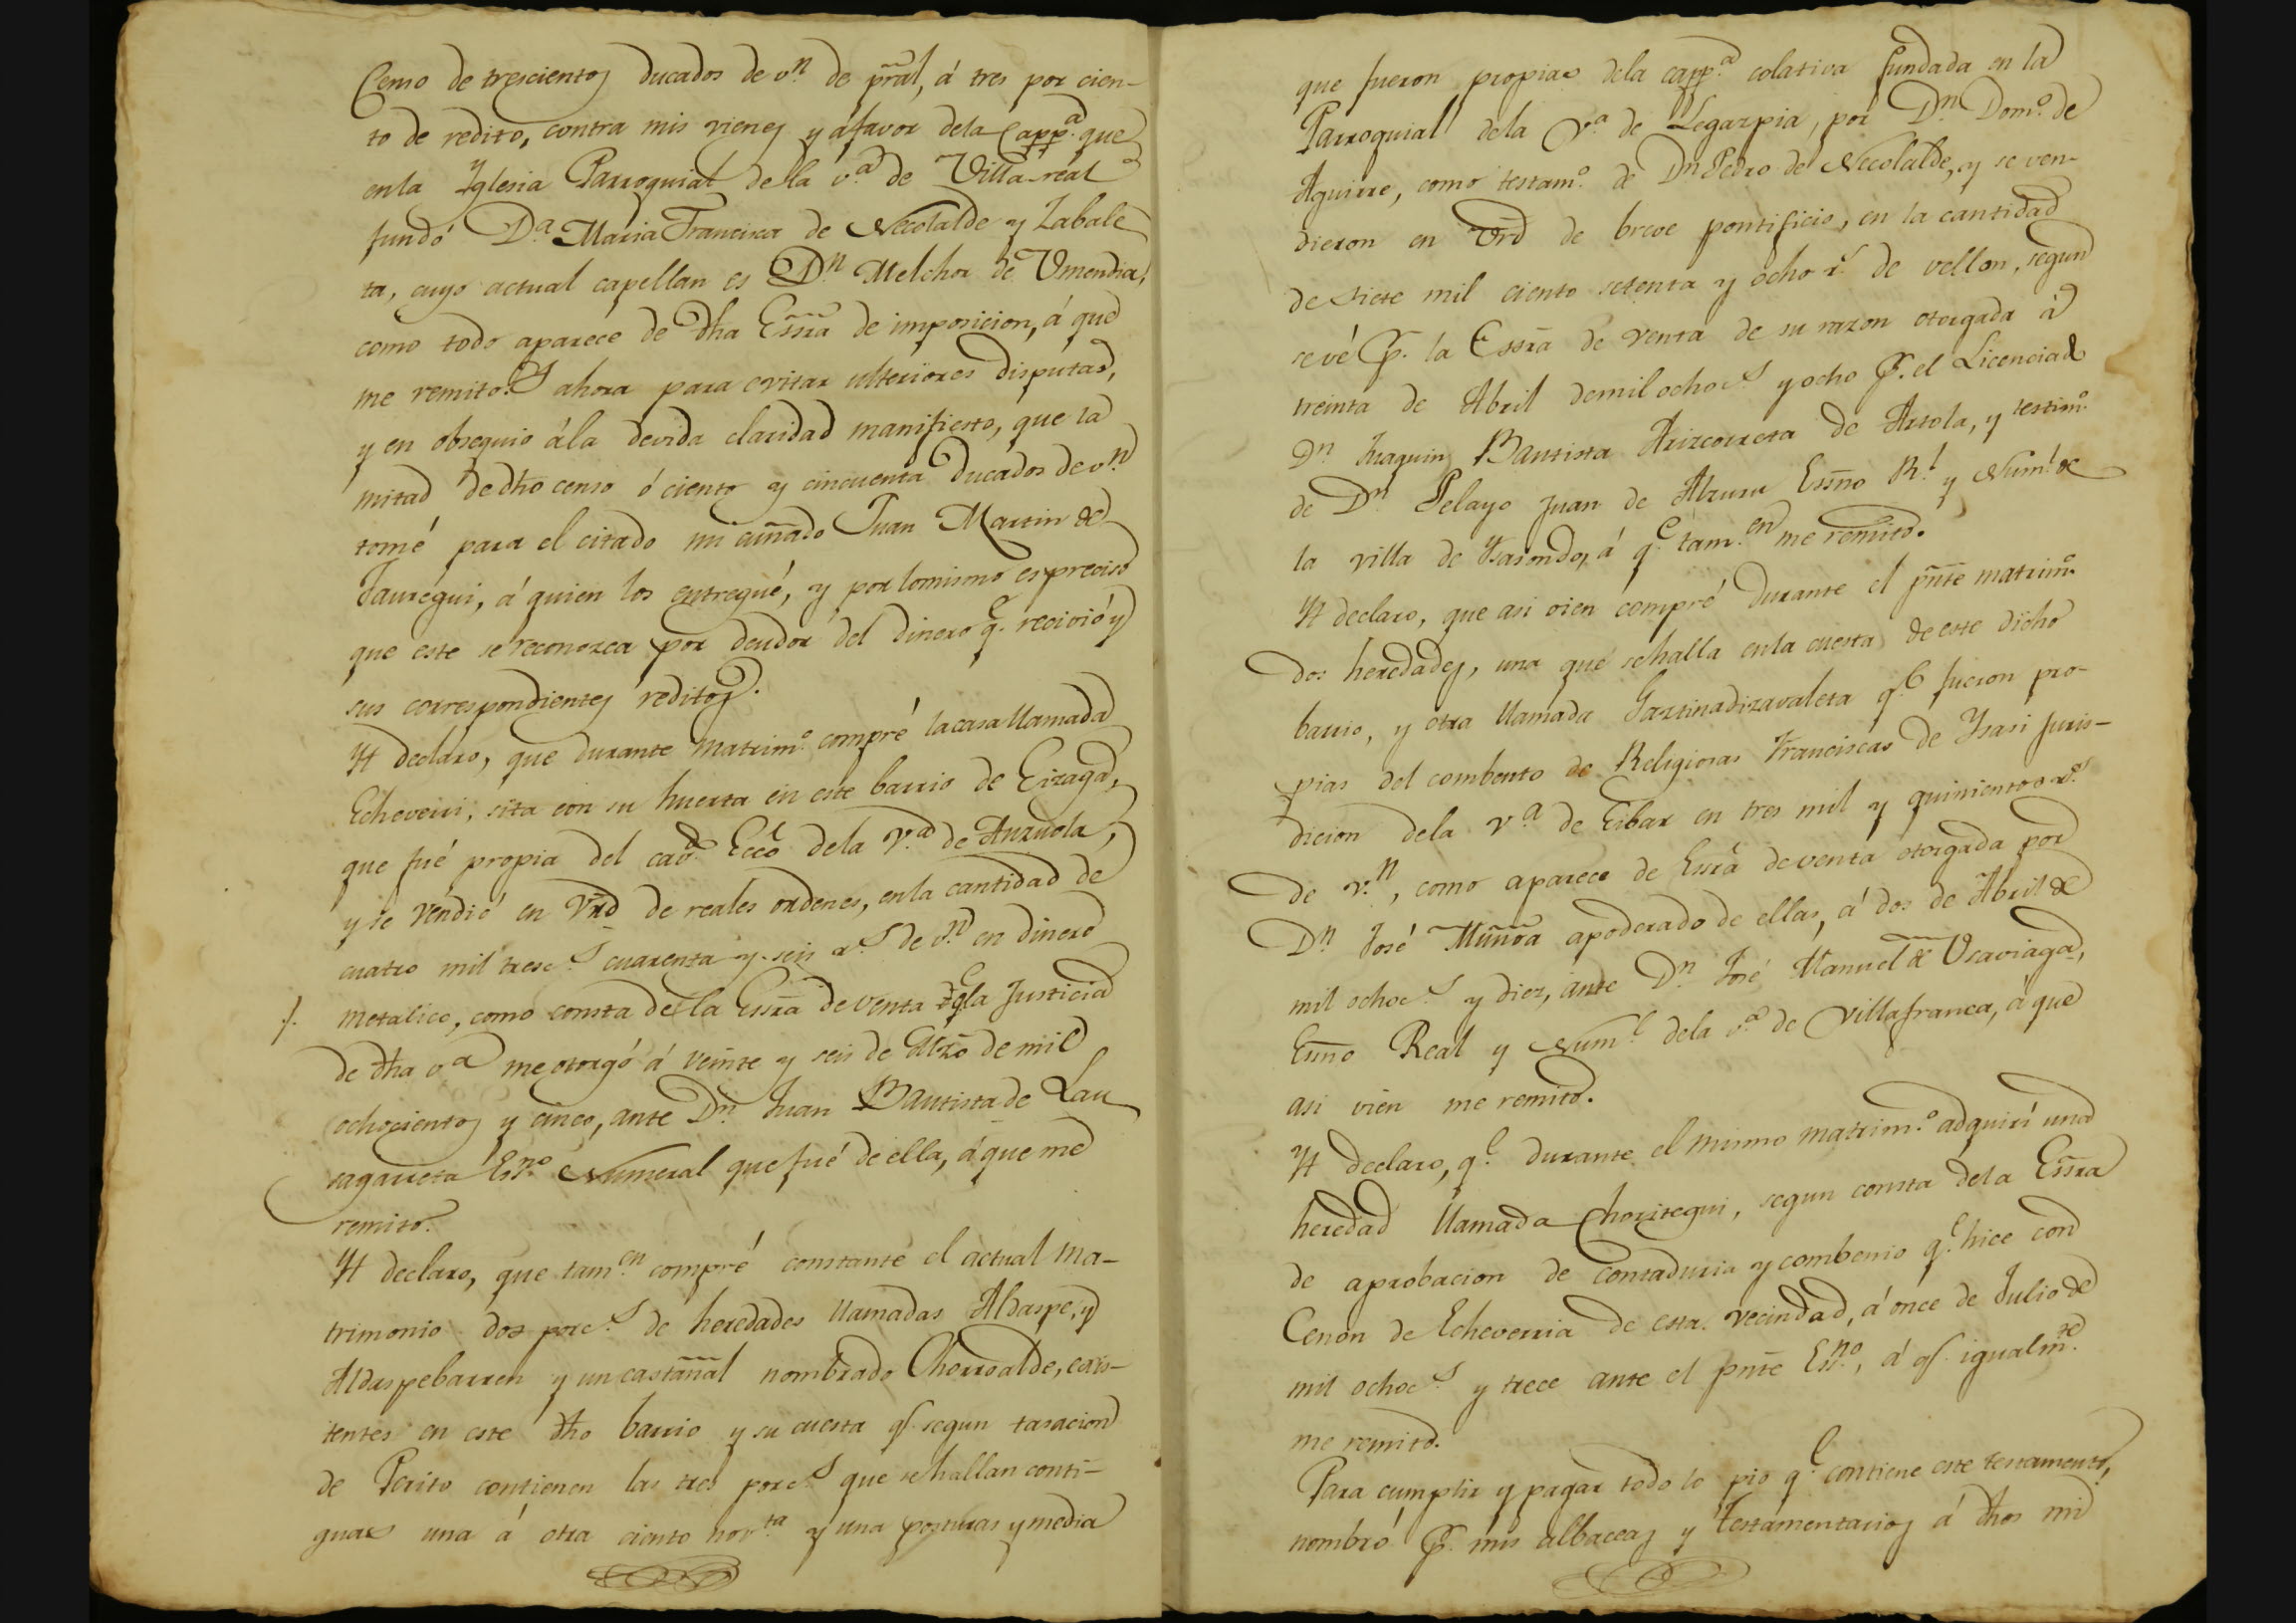 Censo de trescientos ducados de v.n de pral, á tres por cien-
to de redito, contra mis vienes y á favor dela Capp.a que
enla Yglesia Parroquial de la v.a de Villa-real
fundó D.a Maria Francisca de Necolalde y Zabale
ta, cuyo actual capellan es D.n Melchor de Umendia,
como todo aparece de dha Essra de imposicion, á que
me remito. Y ahora para evitar ulteriores disputas,
y en obsequio ála devida claridad manifiesto, que la
mitad de dho censo ó ciento y cincuenta ducados de v.n
tomé para el citado mi cuñado Juan Martin de
Jauregui, á quien los entregué, y por lo mismo es preciso
que este se reconozca por deudor del dinero q.e recivió y
sus correspondientes reditos.
Yt declaro, que durante matrim.o compré la casa llamada
Echeverri, sita con su huerta en este barrio de Eizaga,
que fué propia del cav.do Ecco dela V.a de Anzuola,
y se vendió en Vrd de reales ordenes, enla cantidad de
cuatro mil tresc.s cuarenta y seis r.s de v.n en dinero
metalico, como consta de la Essra de venta q.e la Justicia
de dha v.a me otorgó á veinte y seis de Mzo de mil
ochocientos y cinco, ante D.n Juan Bautista de Lau
sagarreta Es.no Numeral que fué de ella, á que me
remito.
Yt declaro, que tam.en compré constante el actual ma-
trimonio dos porc.s de heredades llamadas Aldaspe, y
Aldaspebarren y un castañal nombrado Chorroalde, exis-
tentes en este dho barrio y su cuesta q.e segun tasacion
de Perito contienen las tres porc.s que se hallan conti-
guas una á otra ciento nov.ta y una posturas y media
que fueron propias dela capp.a colativa fundada en la
Parroquial dela V.a de Legazpia, por D.n Dom.o de
Aguirre, como testam.o de D.n Pedro de Necolalde, y se ven-
dieron en Vrd de breve pontificio, en la cantidad
de siete mil ciento setenta y ocho r.s de vellon, segun
se vé P. la Essra de venta de su razon otorgada á
treinta de Abril de mil ochoc.s y ocho P. el Licenciado
D.n Juaquin Bautista Arizcorreta de Artola, y testim.o
de D.n Pelayo Juan de Alzuru Essno R.l y Num.l de
la villa de Ysasondo, á q.e tam.en me remito.
Yt declaro, que asi vien compré durante el pnte matrim.o
dos heredades, una que se halla enla cuesta de este dicho
barrio, y otra llamada Gaztinadizavaleta q.e fueron pro-
pias del combento de Religiosas Franciscas de Ysasi juris-
dicion dela v.a de Eibar en tres mil y quinientos r.s
de v.n, como aparece de Essra de venta otorgada por
D.n José Muñoa apoderado de ellas, á dos de Abril de
mil ochoc.s y diez, ante D.n José Manuel de Usaviaga,
Essno Real y Num.l dela v.a de Villafranca, á que
asi vien me remito.
Yt declaro, q.e durante el mismo matrim.o adquirí una
heredad llamada Choritegui, segun consta dela Essra
de aprobacion de Contaduria y combenio q.e hice con
Cenon de Echeverria de esta vecindad, á once de Julio de
mil ochoc.s y trece ante el pnte Es.no, á q.e igualm.te
me remito.
Para cumplir y pagar todo lo pio q.e contiene este testamento,
nombró P. mis albaceas y testamentarios á dhos mi